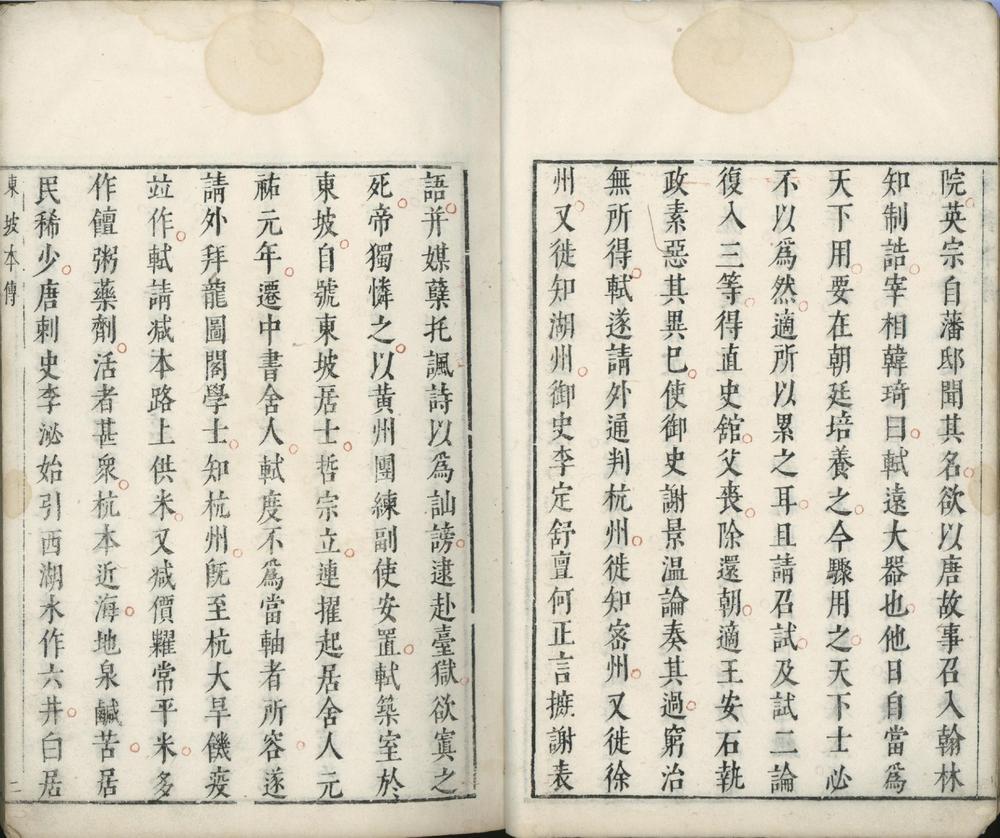 院英宗自藩邸聞其名欲以唐故事召入翰林
知制誥宰相韓琦曰軾遠大器也他日自當爲
天下用要在朝廷培養之今驟用之天下士必
不以爲然適所以累之耳且請召試及試二論
復入三等得直史舘父喪除還朝適王安石執
政素惡其異已使御史謝景溫論奏其過窮治
無所得軾遂請外通判杭州徙知密州又徙徐
州又徙知湖州御史李定舒亶何正言摭謝表
語并媒蘖托諷詩以爲訕謗逮赴臺獄欲寘之
死帝獨憐之以黄州團練副使安置軾築室於
東坡自號東坡居士哲宗立連擢起居舍人元
祐元年遷中書舍人軾度不爲當軸者所容遂
請外拜龍圖閣學士知杭州旣至杭大旱饑疫
竝作軾請减本路上供米又减價糶常平米多
作饘粥藥劑活者甚衆杭本近海地泉鹹苦居
民稀少唐刺史李泌始引西湖水作六井白居
東坡本傳
二